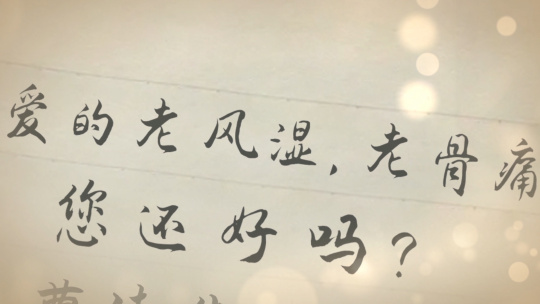 爱的老风湿,老骨痛
您还好吗?